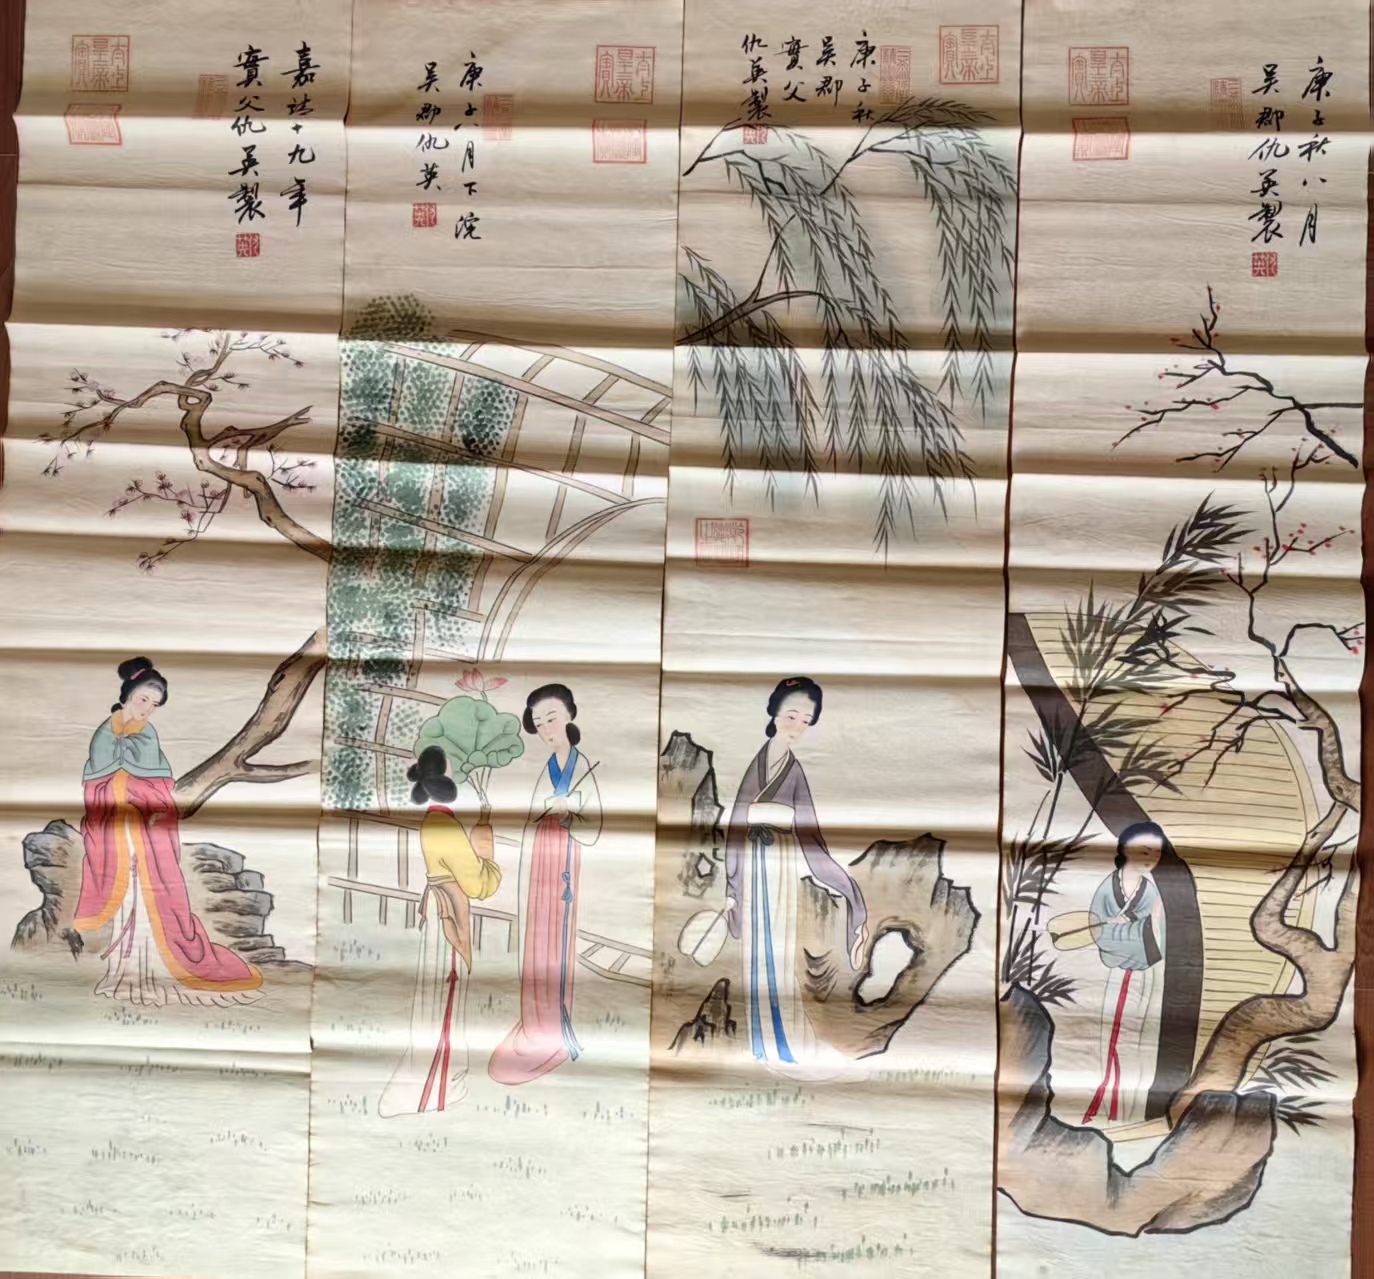 庚子秋八月
吴郡仇英製
仇英
庚子秋
吴郡
實父
仇英製
仇英
庚子八月下浣
吴郡仇英
仇英
嘉靖十九年
實父仇英製
仇英